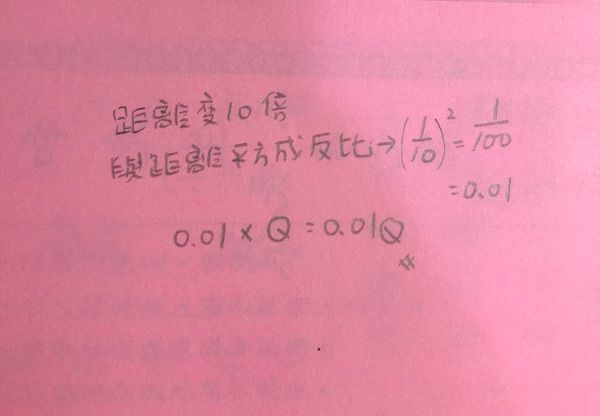 距離變10倍
與距離平方成反比→(1/10)²=1/100
=0.01
0.01×Q=0.01Q
#